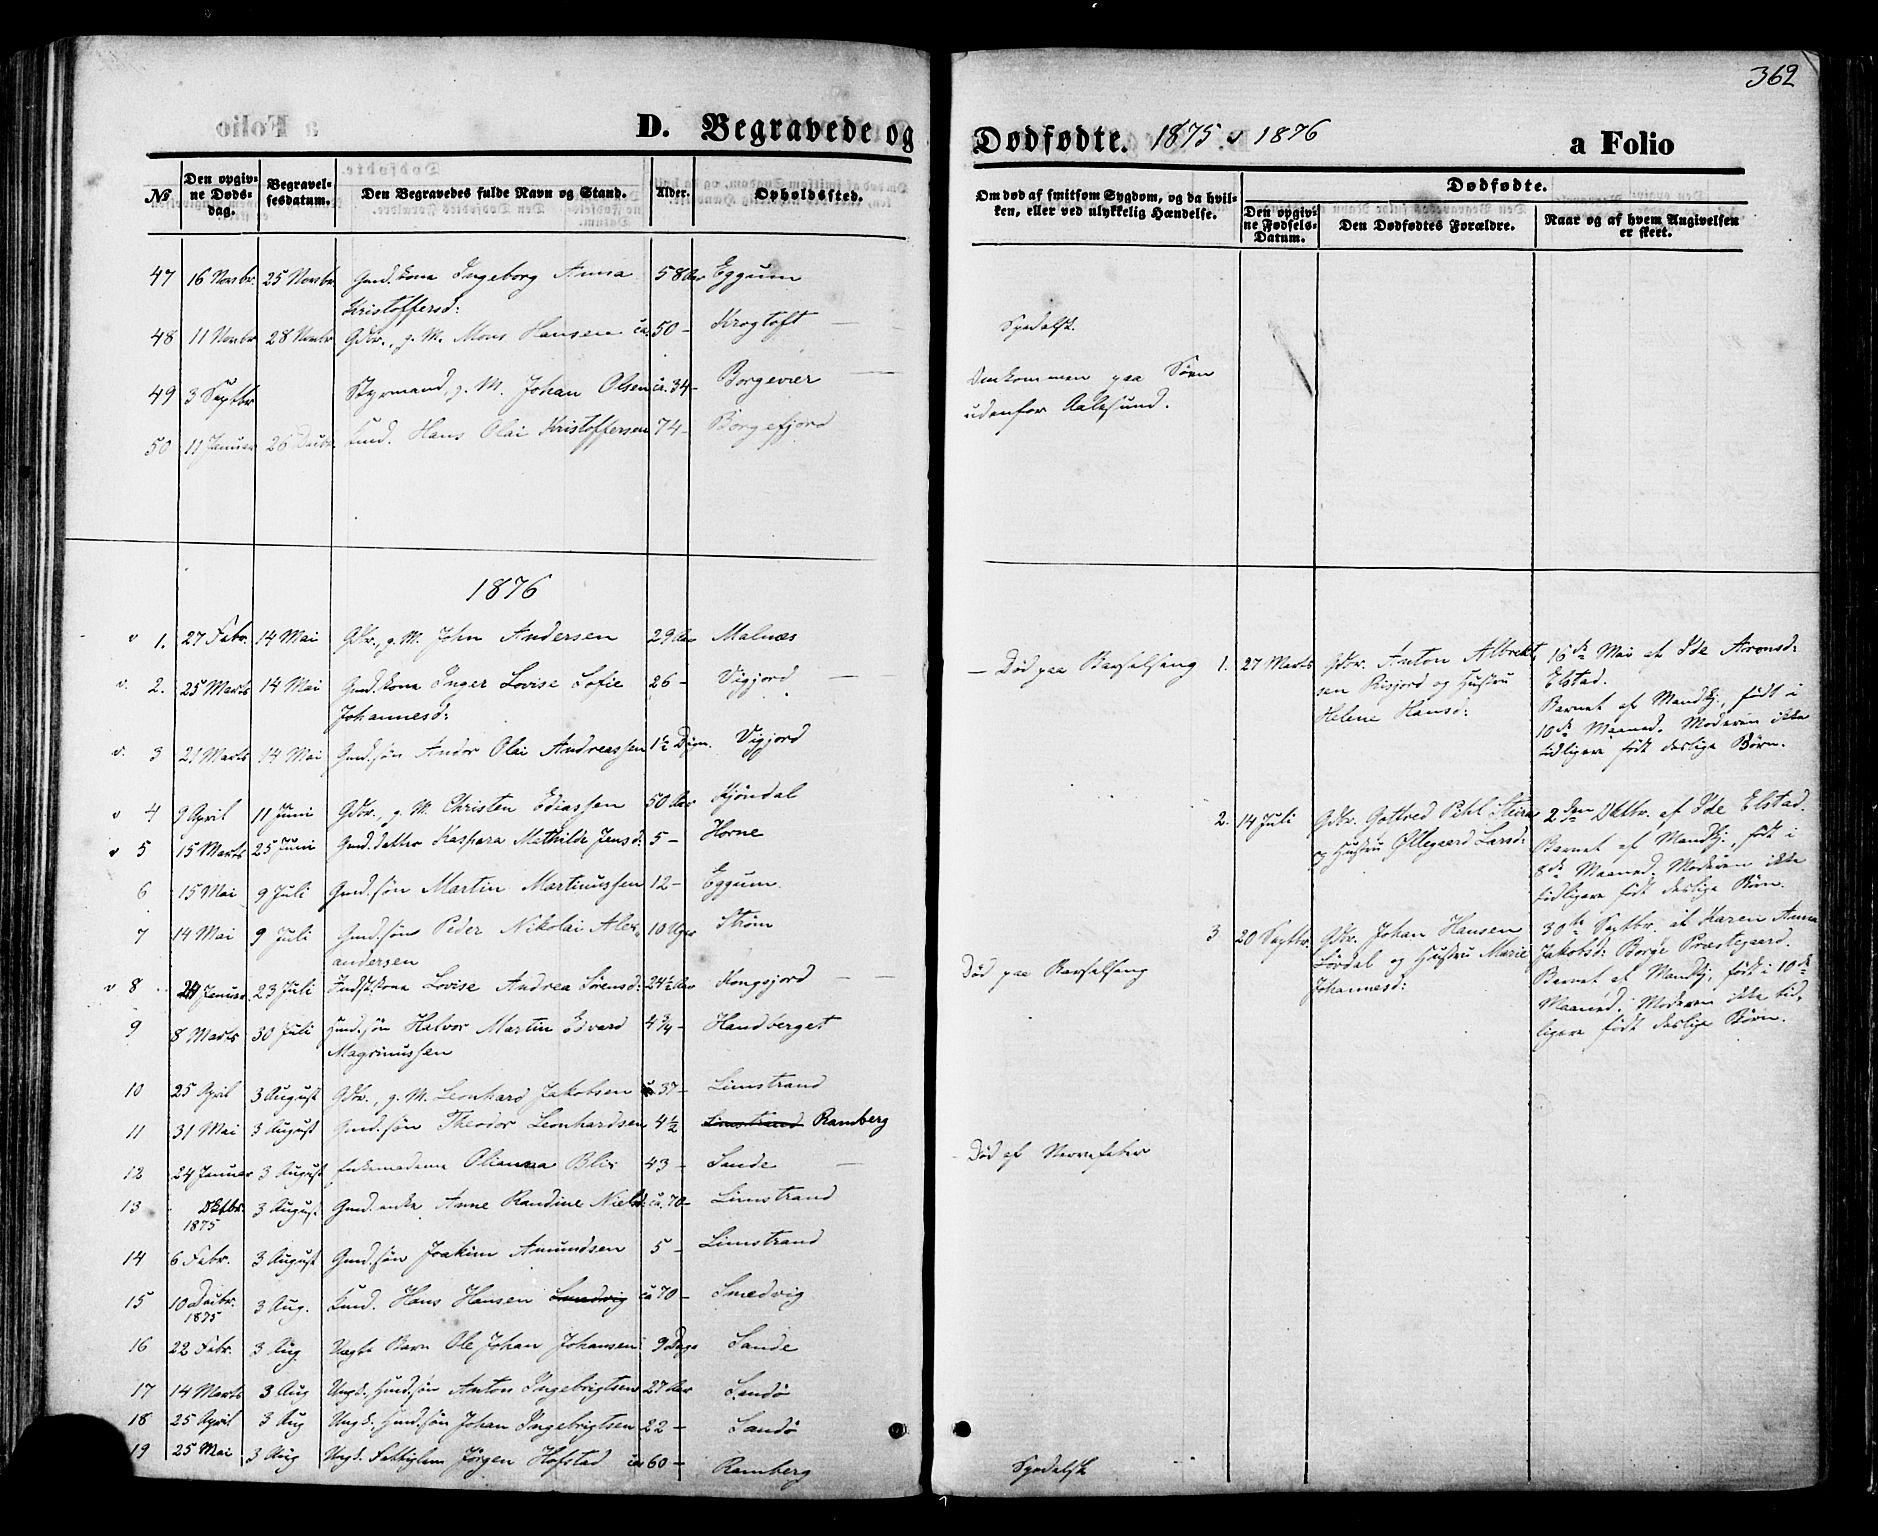 362
D. Begravede og Dødfødte. 1875 o 1876
a Folio
№
Den opgivne Dødsdag.
Begravelsesdatum.
Den Begravedes fulde Navn og Stand.
Alder.
Opholdssted.
Om død af smitsom Sygdom, og da hvilken, eller ved ulykkelig Hændelse.
Dødfødte.
Den opgivne Fødsels-Datum.
Den Dødfødtes Forældre.
Naar og af hvem Angivelsen er skeet.
47 16 Novbr. 25 Novbr. Gmd. kone Ingeborg Anna 58 Aar Eggum
Kristoffersd:
48 11 Novbr 28 Novbr Gdbr., g. M. Mons Hansen ca. 50 - Krogtoft — Spedalsk.
49 3 Septbr Styrmand, g. M. Johan Olsen ca. 34 - Borgevær — Omkommen paa Søen
udenfor Aalesund.
50 11 Januar 26 Decbr. Hans Olai Kristoffersen 74 - Borgefjord
1876
v 1. 27 Febr. 14 Mai Gdbr., g. M. John Andersen 29 Aar Malnæs
v. 2. 25 Marts 14 Mai Gmd. kone Inger Lovise Sofie 26 - Vigjord — Død paa Barselseng
Johannesd:
v. 3 21 Marts 14 Mai Gmd. søn Andor Olai Andreassen 1½ Døgn. Vigjord
v 4 9 April 11 Juni Gdbr., g. M. Christen Ediassen 50 Aar Kjøndal
v 5 15 Marts 25 Juni Gmd. datter Kaspara Mathilde Jensd: 5 - Horne
6 15 Mai 9 Juli Gmd. søn Martin Martinussen 12 - Eggum.
7 14 Mai 9 Juli Gmd. søn Peder Nikolai Alex- 10 Uger Strøm
andersen
v 8 Januar 23 Juli Indst. kone Lovise Andrea Sørensd: 24½ Aar Kongsjord — — Død paa Barselseng
9 8 Marts 30 Juli Gmd. søn Halvor Martin Edvard 4¾ - Handberget
Magnussen
10 25 April 3 August Gdbr., g. M. Leonhard Jakobsen 37 - Limstrand
11 31 Mai 3 August Gmd. søn Theodor Leonhardsen 4½ Limstrand Ramberg
12 24 Januar 3 August Enkemadame Olianna Blix 43 - Sande — Død af Nervefeber
13 Oktbr. 1875 3 August Gmd. enke Anne Randine Nielsd: ca. 70 - Limstrand
14 6 Febr. 3 August Gmd. søn Joakim Amundsen 5 - Limstrand
15 10 Decbr. 1875 3 Aug. Hans Hansen Smedvig ca 70 - Smedvig
16 22 Febr. 3 Aug. Uægte Barn Ole Johan Johansen 9 Dage Sande
17 14 Marts 3 Aug Ungk., Gmd. søn Anton Ingebrigtsen 27 Aar Sandø
18 25 April 3 Aug Ungk. Gmd. søn Johan Ingebrigtsen 22 - Sandø
19 25 Mai 3 Aug Ungk. Fattiglem Jørgen Hofstad ca 60 - Ramberg Spedalsk
1. 27 Marts Gdbr. Anton Albrekt-
sen Risjord og Hustru
Helene Hansd:
16de Mai af Ide Aronsd:
Elstad.
Barnet af Mandkj., født i
10de Maaned. Moderen ikke
tidligere født deslige Børn.
2. 14 Juli Gdbr. Gotfred Pihl
og Hustru Øllegaard Larsd:
2den Oktbr. af Ide Elstad.
Barnet af Mandkj., født i
8de Maaned. Moderen ikke
tidligere født deslige Børn.
3 20 Septbr. Gdbr. Johan Hansen
Lørdal og Hustru Marie
Johannesd:
30te Septbr. af Karen Anna
Jakobsd: Borge Præstegaard.
Barnet af Mandkj., født i 10de
Maaned. Moderen ikke tid-
ligere født deslige Børn.